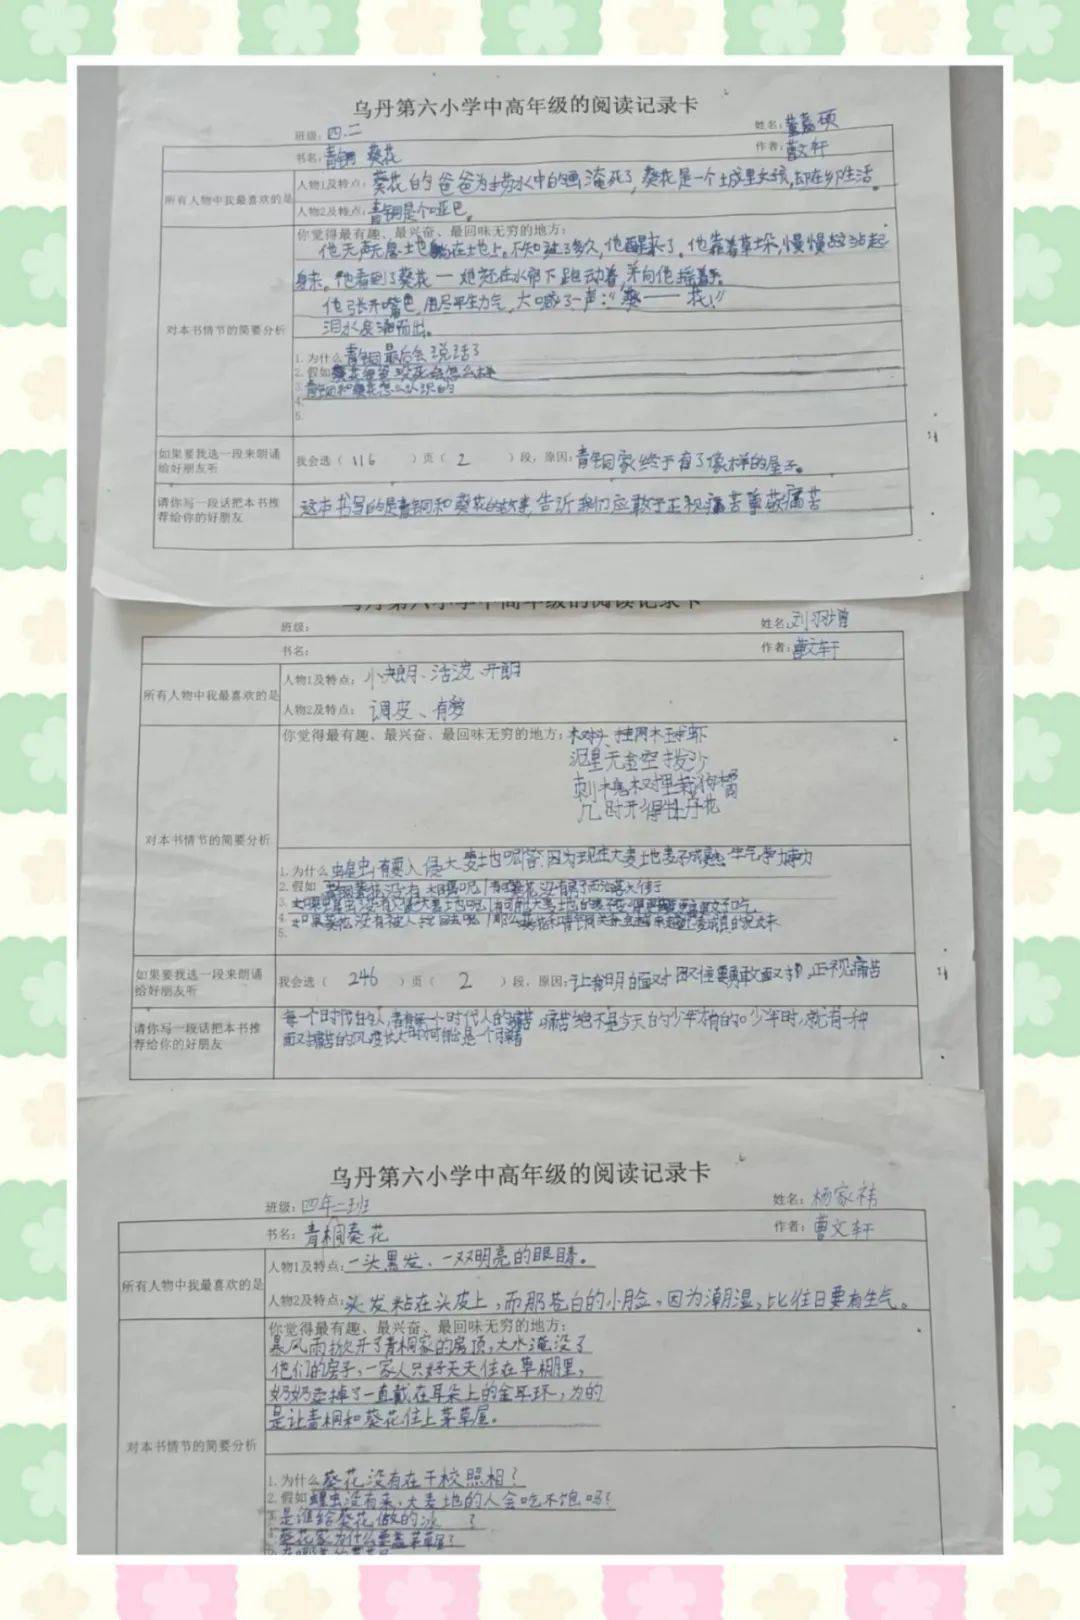 乌丹第六小学中高年级的阅读记录卡
班级：四.二 姓名：董嘉硕
书名：青铜葵花 作者：曹文轩
所有人物中我最喜欢的是
人物1及特点：葵花的爸爸为水中的画淹死了，葵花是一个城里女孩，却在乡生活。
人物2及特点：青铜是个哑巴。
对本书情节的简要分析
你觉得最有趣、最兴奋、最回味无穷的地方：
他无声无息土地躺在地上。不知过了多久，他醒来了。他靠着草垛，慢慢站起
身来。他看到了葵花——她还在水帘下跑动着，并向他摇着手。
他张开嘴巴，用尽平生力气，大喊了一声：“葵——花！”
泪水夺涌而出。
1. 为什么青铜最后会说话了
2. 假如葵花爸爸没死会怎么样
3. 青铜和葵花怎么认识的
4.
5.
如果要我选一段来朗诵
给好朋友听
我会选（ 116 ）页（ 2 ）段，原因：青铜家终于有了像样的屋子。
请你写一段话把本书推
荐给你的好朋友
这本书写的是青铜和葵花的故事，告诉我们应敢于正视痛苦尊敬痛苦
乌丹第六小学中高年级的阅读记录卡
班级： 姓名：刘
书名： 作者：曹文轩
所有人物中我最喜欢的是
人物1及特点：活泼、开朗
人物2及特点：调皮、有
对本书情节的简要分析
你觉得最有趣、最兴奋、最回味无穷的地方：
几时开得牡丹花
1. 为什么蝗虫要入侵大麦地呢答：因为现在大麦地麦子成熟
2. 假如青铜葵花没有
3.
4. 如果葵花没有被人
5.
如果要我选一段来朗诵
给好朋友听
我会选（ 246 ）页（ 2 ）段，原因：让我明白面对困难要勇敢面对，正视痛苦
请你写一段话把本书推
荐给你的好朋友
每一个时代的人，都有每一个时代人的痛苦，痛苦绝不是今天的少年才有的。少年时，就有一种
面对痛苦的风度长大时才可能是一个强者
乌丹第六小学中高年级的阅读记录卡
班级：四年二班 姓名：杨家祎
书名：青桐葵花 作者：曹文轩
所有人物中我最喜欢的是
人物1及特点：一头黑发、一双明亮的眼睛。
人物2及特点：头发粘在头皮上，而那苍白的小脸，因为潮湿，比往日要有生气。
对本书情节的简要分析
你觉得最有趣、最兴奋、最回味无穷的地方：
暴风雨掀开了青桐家的房顶，大水淹没了
他们的房子，一家人只好天天住在草棚里，
奶奶卖掉了一直戴在耳朵上的金耳环，为的
是让青桐和葵花住上茅草屋。
1. 为什么葵花没有在干校照相？
2. 假如蝗虫没有来，大麦地的人会吃不饱吗？
是谁给葵花做的冰 ？
葵花家为什么要盖茅草屋？